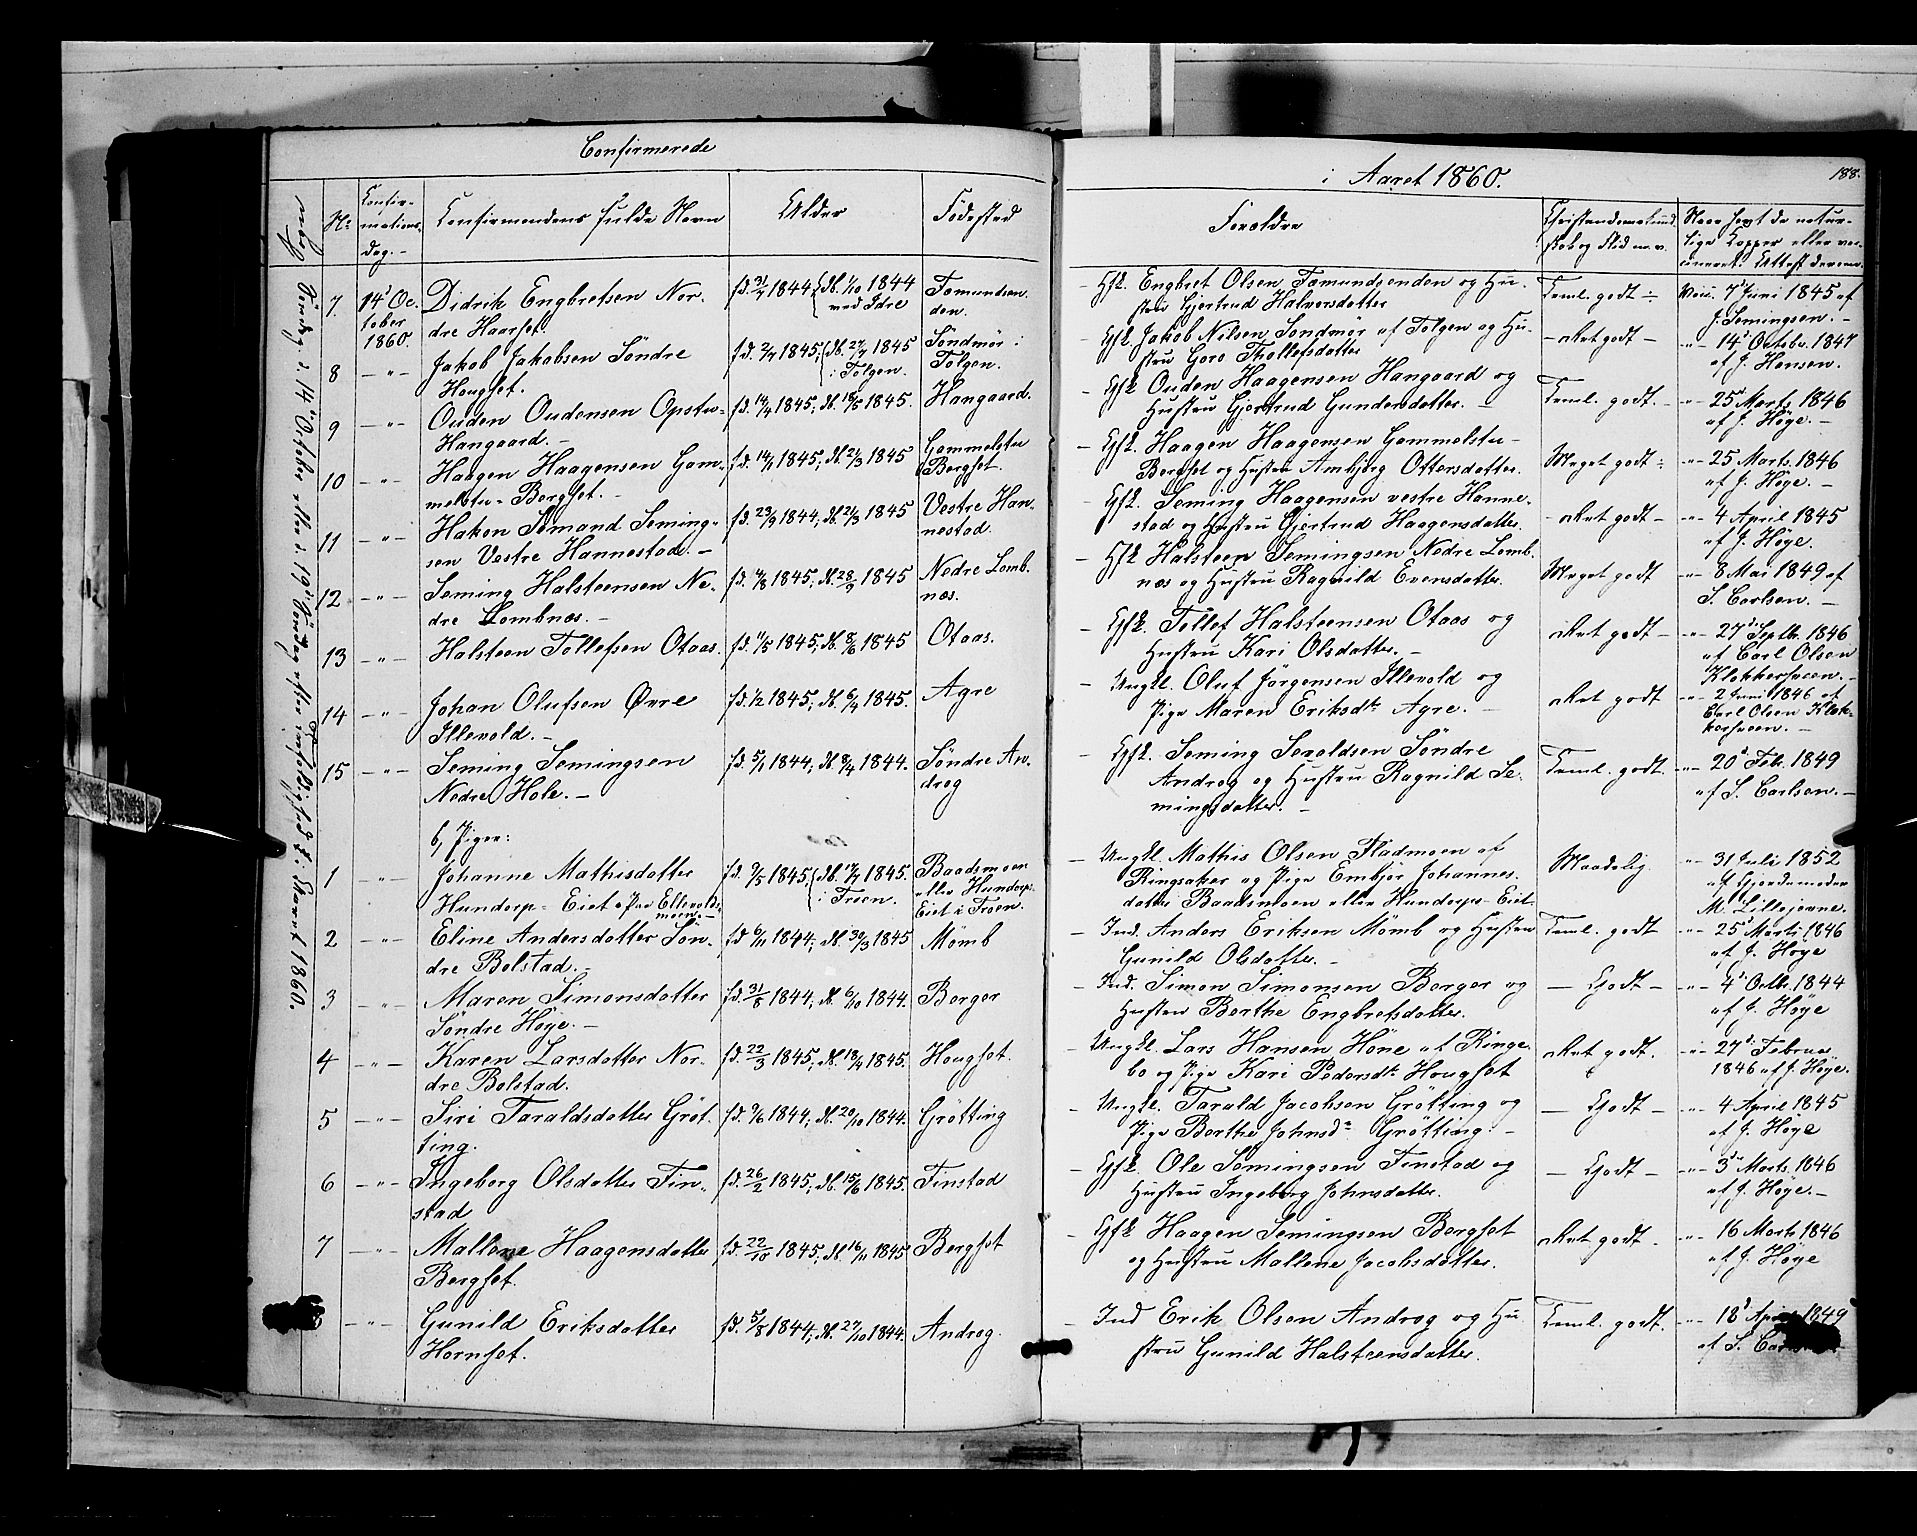 Confirmerede
i Aaret 1860.
188.
No
Confir-
mations
dag. -
Confirmandens fulde Navn
Alder
Fødested
Forældre
Christendomskund-
skab og Flid m.v.
Naar havt de natur-
lige Kopper eller vac-
cineret. Attest derom.
Søndag d. 14de October eller d. 19de Søndag efter Trefoldighed f. Storvet 1860.
7. 14de Oc-
tober
1860.
Didrik Engbretsen Nor-
dre Haarset.
fd. 31/7 1844; db. 1/10 1844
ved Idre
Fæmundsen-
den.
Gfl. Engbret Olsen Fæmundsenden og Hu-
stru Gjertrud Halvorsdatter
Teml. godt
Vacc. 7de Juni 1845 af
J. Semingsen. -
8 -"- Jakob Jakobsen Søndre
Hougset.
fd. 2/7 1845; db. 27/7 1845
i Tolgen.
Søndmør i
Tolgen.
Gfl. Jakob Nilsen Søndmør af Tolgen og Hu-
stru Goro Thollefsdatter
- Ret godt -
-"- 14de Octobr. 1847
af J. Hansen.
9 -"- Ouden Oudensen Opstu-
Hangaard. -
fd. 14/4 1845; db. 18/5 1845.
Hangaard.
Gfl. Ouden Haagensen Hangaard og
Hustru Gjertrud Gundersdatter. -
Teml. godt. -
-"- 25de Marts 1846
af J. Høye. -
10 -"- Haagen Haagensen Gam-
melstu-Bergset. -
fd. 14/1 1845; db. 21/3 1845
Gammelstu
Bergset.
Gfl. Haagen Haagensen Gammelstu-
Bergset og Hustru Ambjørg Ottersdatter.
Meget godt
-"- 25 Marts. 1846
af J. Høye. -
11 -"- Hakon Semand Seming-
sen Vestre Hannestad. -
fd. 23/9 1844; db. 21/3 1845
Vestre Han-
nestad.
Gfl. Seming Haagensen vestre Hanne-
stad og Hustru Gjertrud Haagensdatter.
- Ret godt -
-"- 4 April 1845
af J. Høye.
12 -"- Seming Halsteensen Ne-
dre Lombnæs. -
fd. 4/8 1845; db. 28/9 1845
Nedre Lomb-
næs.
Gfl. Halsteen Semingsen Nedre Lomb-
næs og Hustru Ragnild Evensdatter.
Meget godt
-"- 8 Mai 1849 af
S. Carlsen. -
13 -"- Halsteen Tollefsen Otaas.
fd. 11/5 1845; db. 8/6 1845
Otaas.
Gfl. Tollef Halsteensen Otaas og
Hustru Kari Olsdatter. -
Ret godt -
-"- 27de Septbr. 1846
af Carl Olsen
Klokkersveen. -
14 -"- Johan Olufsen Øvre
Illevold. -
fd. 1/2 1845; db. 6/4 1845.
Agre
Ungkl. Oluf Jørgensen Illevold og
Pige Maren Eriksdtr. Agre. -
Ret godt
-"- 2 Juni 1846 af
Carl Olsen Klok-
kersveen. -
15 -"- Seming Semingsen
Nedre Hole. -
fd. 5/1 1844; db. 8/4 1844.
Søndre An-
drog
Gfl. Seming Iveroldsen Søndre
Androg og Hustru Ragnild Se-
mingsdatter. -
Teml. godt.
-"- 20de Febr. 1849
af S. Carlsen. -
b, Piger:
1 -"- Johanne Mathisdatter
Hundorp-Eiet
fd. 9/5 1845; db. 17/7 1845.
i Froen.
Baadsmoen
eller Hundorps-
Eiet i Froen.
Ungkl. Mathis Olsen Stadmoen af
Ringsaker og Pige Embjør Johannes-
datter Baadsmoen eller Hundorps-Eiet
Maadelig
-"- 31 Juli 1852
af Gjordemoder
M. Lillejevne.
2 -"- Eline Andersdatter Søn-
dre Bolstad. -
fd. 6/11 1844; db. 30/3 1845
Mømb
Ind. Anders Eriksen Mømb og Hustru
Gunild Olsdatter. -
Teml. godt
-"- 25de Marts 1846
af J. Høye
3 -"- Maren Simonsdatter
Søndre Høye. -
fd. 31/8 1844; db. 6/10 1844.
Berger
Ind. Simon Simonsen Berger og
Hustru Berthe Engbretsdatter.
- Godt -
-"- 4de Octbr. 1844
af J. Høye
4 -"- Karen Larsdatter Nor-
dre Bolstad.
fd. 22/3 1845; db. 13/4 1845.
Hougset.
Ungkl. Lars Hansen Høne af Ringe-
bo og Pige Kari Pedersdtr. Hougset
Ret godt.
-"- 27de Februar
1846 af J. Høye.
5 -"- Siri Taraldsdatter Grøt-
ting.
fd. 9/6 1844; db. 20/10 1844.
Grøtting
Ungkl. Tarald Jacobsen Grøtting og
Pige Berthe Johnsdr. Grøtting. -
- Godt -
-"- 4 April 1845
af J. Høye
6 -"- Ingeborg Olsdatter Fin-
stad
fd. 26/2 1845; db. 15/6 1845.
Finstad
Gfl. Ole Semingsen Finstad og
Hustru Ingeborg Johnsdatter.
- Godt -
-"- 3de Marts. 1846
af J. Høye. -
7 -"- Mallene Haagensdatter
Bergset.
fd. 22/10 1845; db. 16/11 1845
Bergset
Gfl. Haagen Semingsen Bergset
og Hustru Mallene Jacobsdatter.
Ret godt -
-"- 16 Marts 1846
af J. Høye
-"- Gunild Eriksdatter
Hornset.
fd. 5/8 1844; db. 27/10 1844.
Androg.
Ind Erik Olsen Androg og Hu-
stru Gunild Halsteensdatter.
Teml. godt.
-"- 18de April 1849
af S.